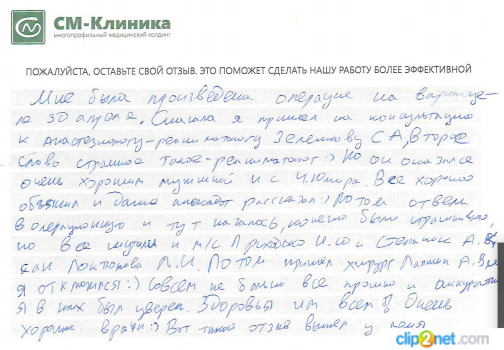 СМ-Клиника
многопрофильный медицинский холдинг
ПОЖАЛУЙСТА, ОСТАВЬТЕ СВОЙ ОТЗЫВ. ЭТО ПОМОЖЕТ СДЕЛАТЬ НАШУ РАБОТУ БОЛЕЕ ЭФФЕКТИВНОЙ
Мне была произведена операция на варикоце-
ле 30 апреля. Сначала я пришел на консультацию
к анастезиологу-реаниматологу Зеленкову С А, Второе
слово страшное такое-реаниматолог:) Но он оказался
очень хорошим мужчиной и с Ч.Юмора. Все хорошо
объяснил и даже анекдот рассказал:) Потом отвели
в операционную и тут началось, конечно было страшновато,
но все шутили и м/с Приходько И.Ю и Степанюк А.В
сан Локтионова Л.И. Потом пришел хирург Лапшин А.В и
я отключился:) Совсем не больно все прошло и аккуратно
я в них был уверен. Здоровья им всем!! Очень
хорошие врачи:) Вот такой отзыв вышел у меня
clip2net.com